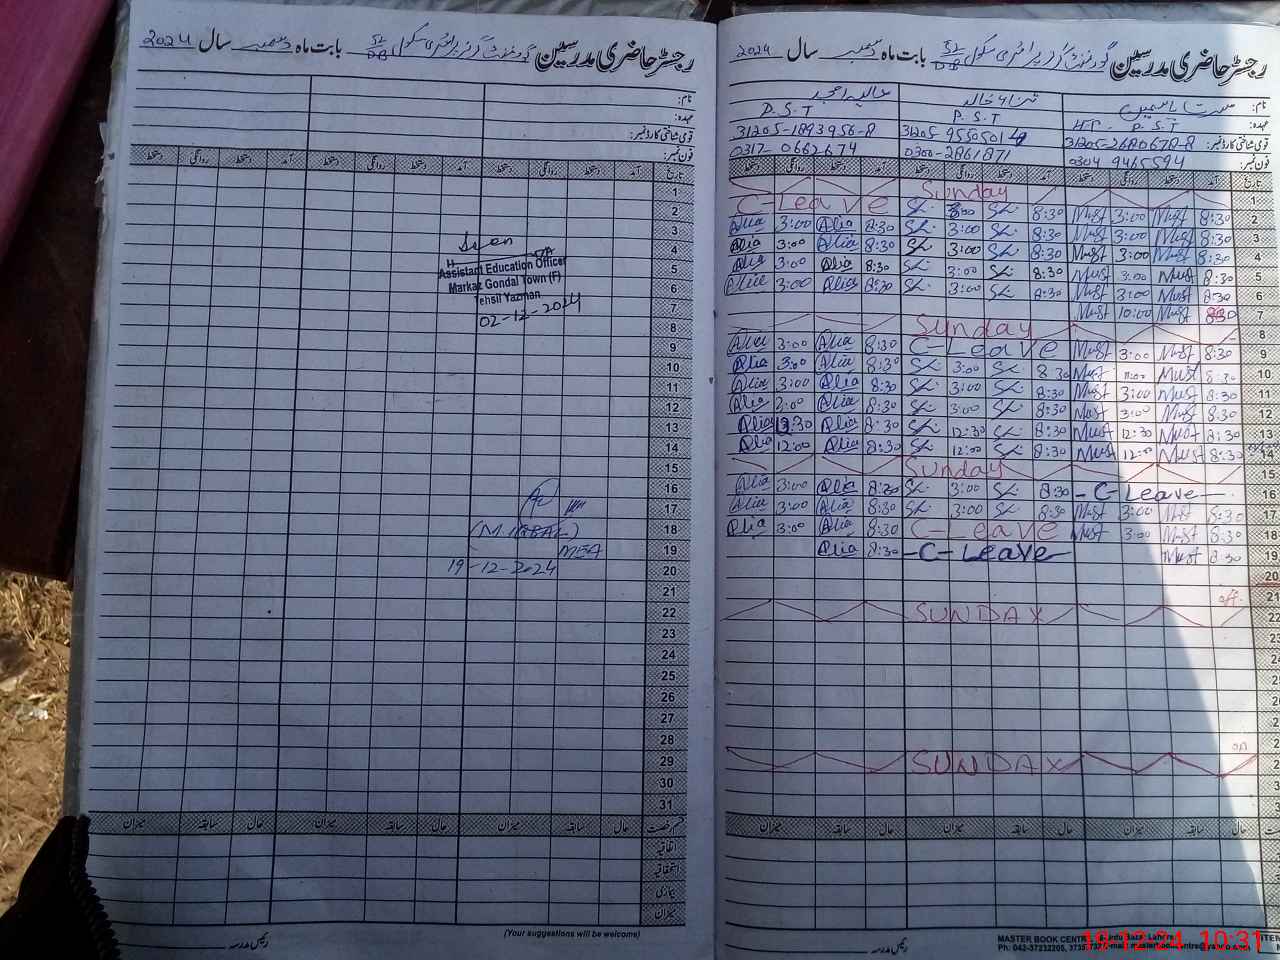 رجسٹر حاضری مدرسین گورنمنٹ گرلز پرائمری سکول 51/DB بابت ماہ دسمبر سال 2024
نام:
عہدہ:
قومی شناختی کارڈ نمبر:
فون نمبر:
تاریخ آمد دستخط روانگی دستخط آمد دستخط روانگی دستخط آمد دستخط روانگی دستخط
1
2
3
4
5
6
7
8
9
10
11
12
13
14
15
16
17
18
19
20
21
22
23
24
25
26
27
28
29
30
31
Assistant Education Officer
Markaz Gondal Town (F)
Tehsil Yazman
02-12-2024
(M. IQBAL)
MEA
19-12-2024
قسم رخصت حال سابقہ میزان حال سابقہ میزان حال سابقہ میزان
اتفاقیہ
استحقاقیہ
بیماری
میزان
رئیس مدرسہ
(Your suggestions will be welcome)
رجسٹر حاضری مدرسین گورنمنٹ گرلز پرائمری سکول 51/DB بابت ماہ دسمبر سال 2024
نام: مسرت یاسمین ثناء خالد عالیہ امجد
عہدہ: H.T. P.S.T P.S.T P.S.T
قومی شناختی کارڈ نمبر: 31205-2680678-8 31205-9550501-4 31205-1893956-8
فون نمبر: 0304 9465594 0300-2861871 0312-0662674
تاریخ آمد دستخط روانگی دستخط آمد دستخط روانگی دستخط آمد دستخط روانگی دستخط
1 Sunday
2 8:30 Must 3:00 Must 8:30 3:00 C-Leave
3 8:30 Must 3:00 Must 8:30 3:00 8:30 Alia 3:00 Alia
4 8:30 Must 3:00 Must 8:30 3:00 8:30 Alia 3:00 Alia
5 8:30 Must 3:00 Must 8:30 3:00 8:30 Alia 3:00 Alia
6 8:30 Must 3:00 Must 8:30 3:00 8:30 Alia 3:00 Alia
7 8:30 Must 10:00 Must
8 Sunday
9 8:30 Must 3:00 Must C-Leave 8:30 Alia 3:00 Alia
10 8:30 Must 11:00 Must 8:30 3:00 8:30 Alia 3:00 Alia
11 8:30 Must 3:00 Must 8:30 3:00 8:30 Alia 3:00 Alia
12 8:30 Must 3:00 Must 8:30 3:00 8:30 Alia 3:00 Alia
13 8:30 Must 12:30 Must 8:30 12:30 8:30 Alia 12:30 Alia
14 8:30 Must 12:00 Must 8:30 12:00 8:30 Alia 12:00 Alia
15 Sunday
16 -C-Leave- 8:30 3:00 8:30 Alia 3:00 Alia
17 8:30 Must 3:00 Must 8:30 3:00 8:30 Alia 3:00 Alia
18 8:30 Must 3:00 Must C-Leave 8:30 Alia 3:00 Alia
19 8:30 Must -C-Leave- 8:30 Alia
20
21 off.
22 SUNDAY
SUNDAY
حال سابقہ میزان حال سابقہ میزان حال سابقہ میزان
رئیس مدرسہ
MASTER BOOK CENTRE
19-12-24 10:31